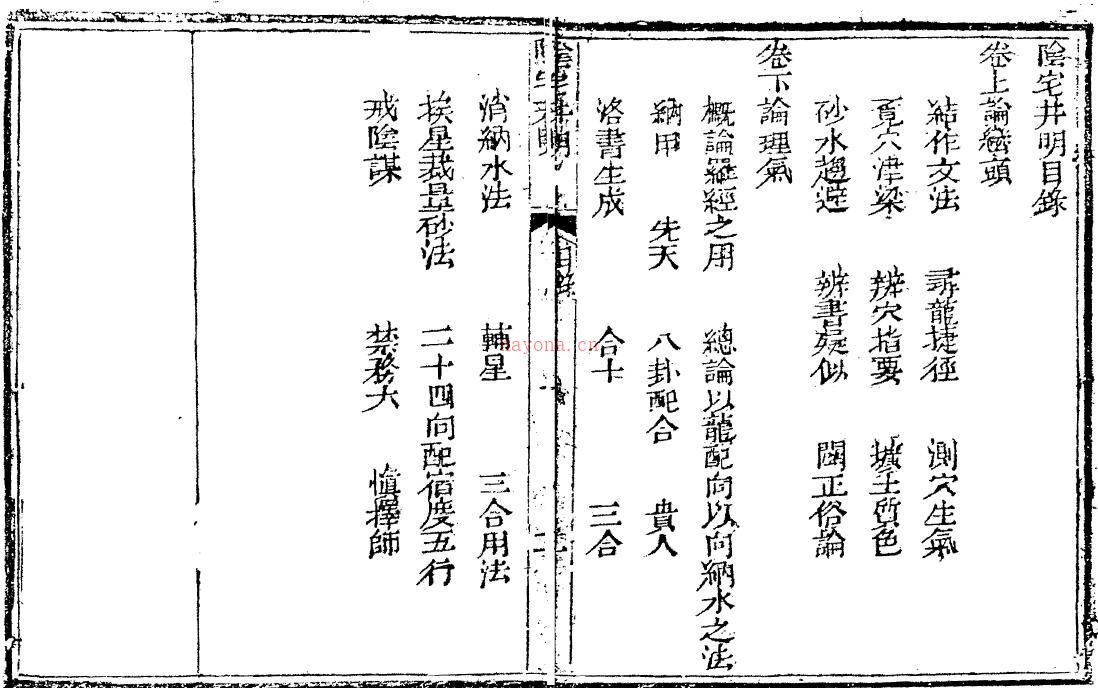 陰宅井明目錄
卷上論巒頭
結作文法　尋龍捷徑　測穴生氣
覓穴津梁　辨穴指要　壙土質色
砂水趨避　辨書疑似　闢正俗論
卷下論理氣
概論羅經之用　總論以龍配向以向納水之法
納甲　先天　八卦配合　貴人
洛書生成　合十　三合
目錄
消納水法　輔星　三合用法
挨星裁量砂法　二十四向配宿度五行
戒陰謀　禁務大　慎擇師
nayona.cn